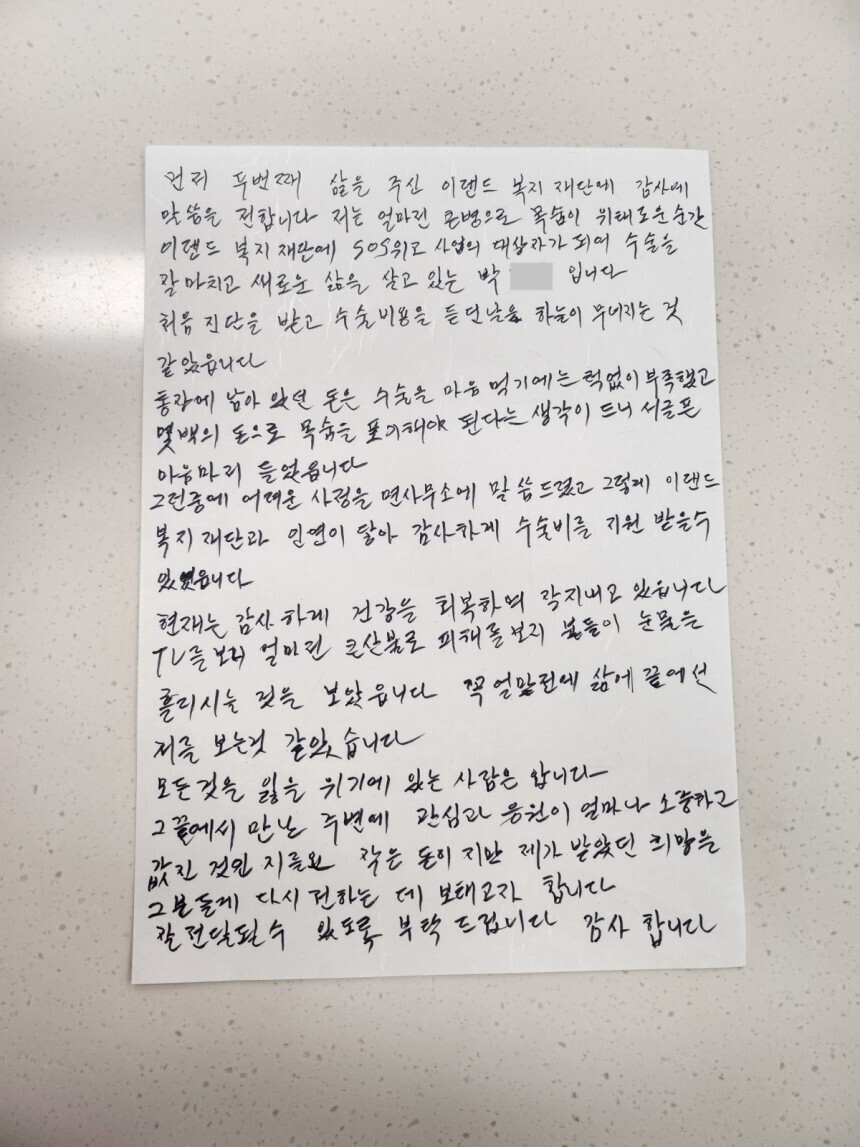 먼저 두번째 삶을 주신 이랜드 복지 재단에 감사에
말씀을 전합니다 저는 얼마전 큰병으로 목숨이 위태로운순간
이랜드 복지재단에 SOS위고 사업의 대상자가 되어 수술을
잘마치고 새로운 삶을 살고 있는 박 입니다
처음 진단을 받고 수술비용을 듣던날은 하늘이 무너지는 것
같았읍니다
통장에 남아 있던 돈은 수술을 마음 먹기에는 턱없이 부족했고
몇백의 돈으로 목숨을 포기해야 된다는 생각이 드니 서글픈
마음마저 들었읍니다
그런중에 어려운 사정을 면사무소에 말씀드렸고 그렇게 이랜드
복지 재단과 인연이 닿아 감사하게 수술비를 지원 받을수
있었읍니다
현재는 감사하게 건강을 회복하며 잘지내고 있읍니다
TV를보니 얼마전 큰산불로 피해를보신 분들이 눈물을
흘리시는 것을 보았읍니다 꼭얼마전에 삶에 끝에선
저를 보는것 같았습니다
모든것을 잃을 위기에 있는 사람은 압니다
그끝에서 만난 주변에 관심과 응원이 얼마나 소중하고
값진 것인 지를요 작은 돈이 지만 제가 받았던 희망을
그분들께 다시 전하는 데 보태고자 합니다
잘전달될수 있도록 부탁 드립니다 감사 합니다